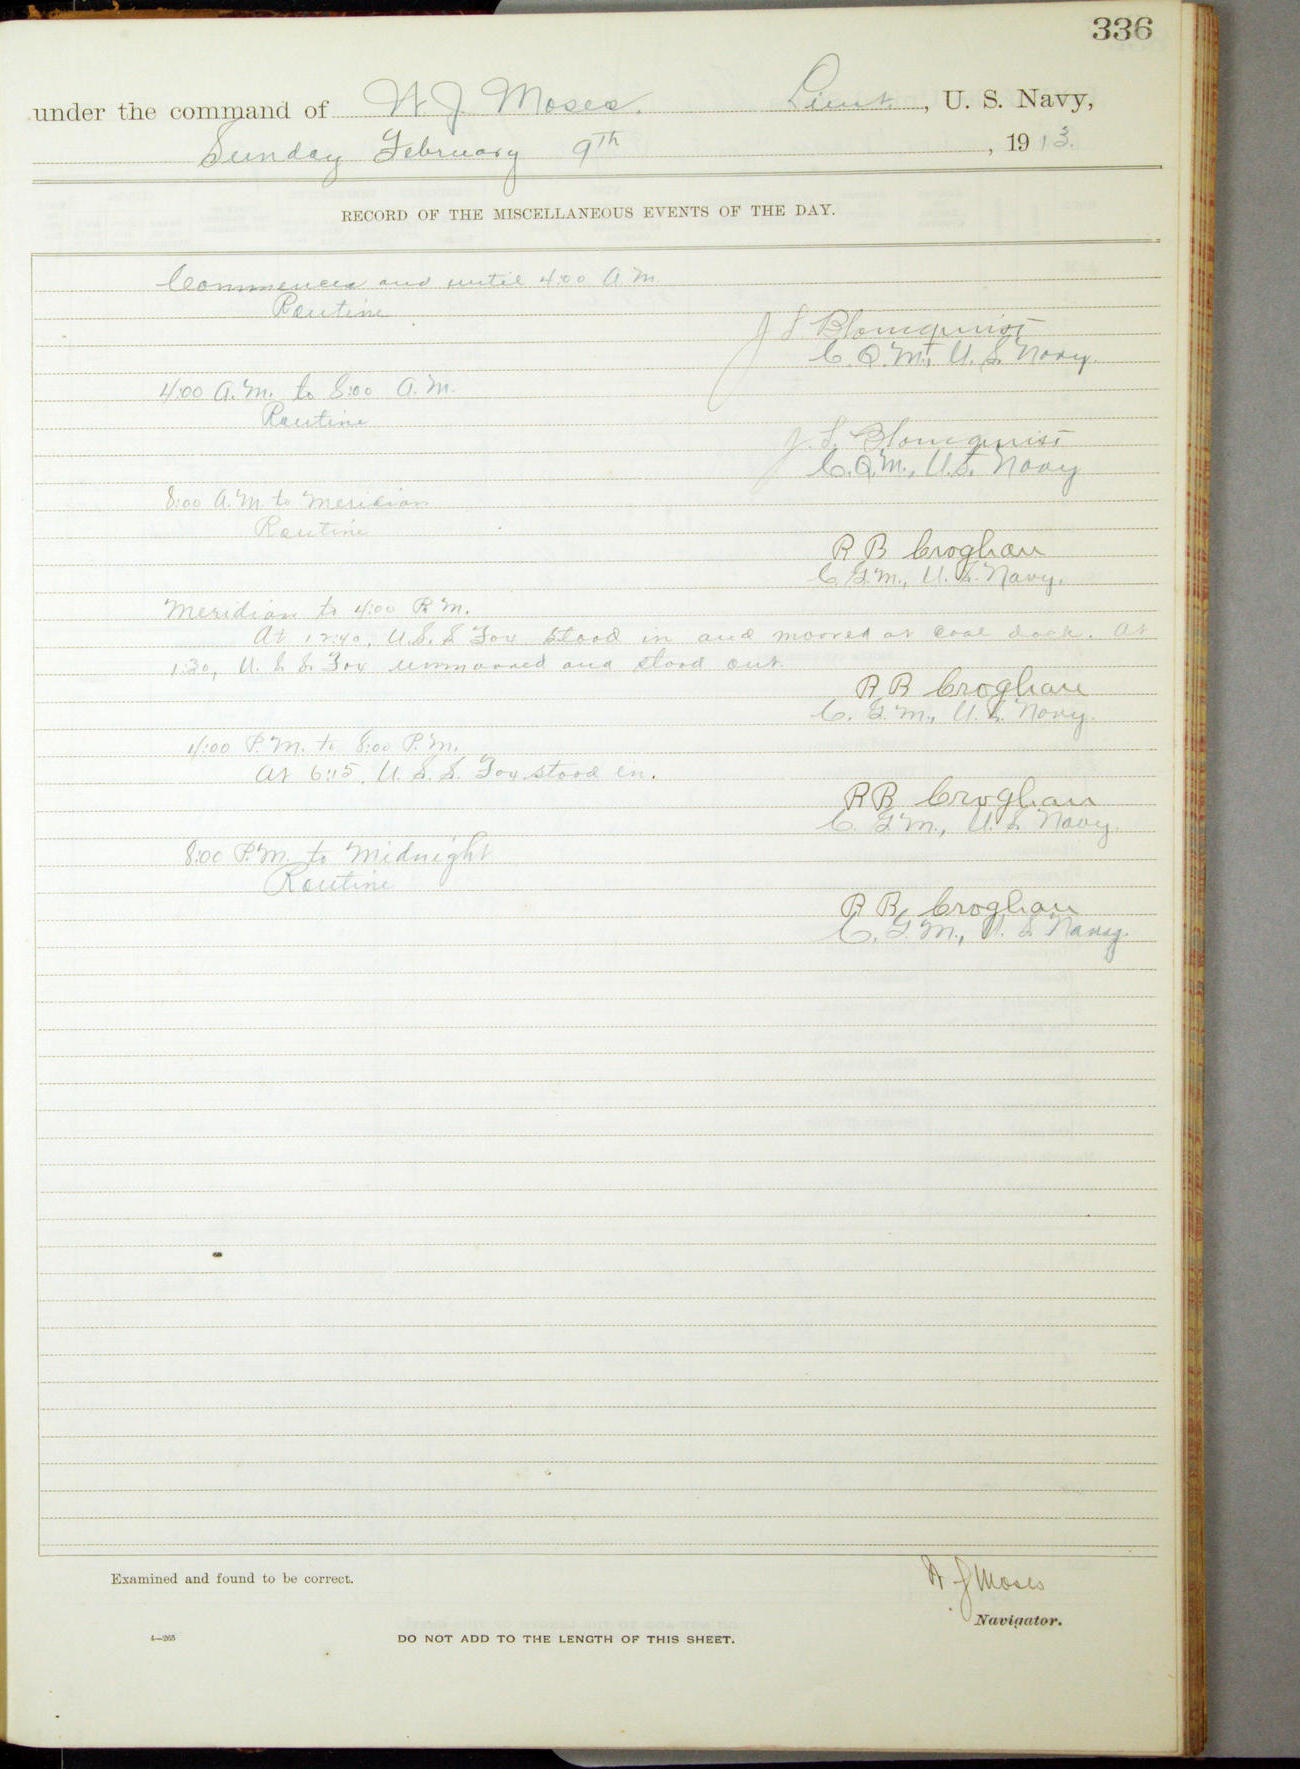 336
under the command of W J Moses. Lieut., U. S. Navy,
Sunday February 9th, 1913.
RECORD OF THE MISCELLANEOUS EVENTS OF THE DAY.
Commences and until 4:00 A M
Routine
J L Blomquist
C. Q. M., U. S. Navy.
4:00 A.M. to 8:00 A.M.
Routine
J. L. Blomquist
C. Q. M., U.S. Navy
8:00 A.M to Meridian
Routine
R B Croghan
C. G. M., U. S. Navy.
Meridian to 4:00 P. M.
At 12:40, U.S.S Fox stood in and moored at coal dock. At
1:30, U. S. S. Fox unmoored and stood out
R B Croghan
C. G. M., U. S. Navy.
4:00 P.M. to 8:00 P.M.
At 6:15, U. S. S. Fox stood in.
R B Croghan
C. G. M., U. S. Navy.
8:00 P.M. to Midnight
Routine
R B Croghan
C. G. M., U. S. Navy.
Examined and found to be correct.
W J Moses
Navigator.
4—265
DO NOT ADD TO THE LENGTH OF THIS SHEET.